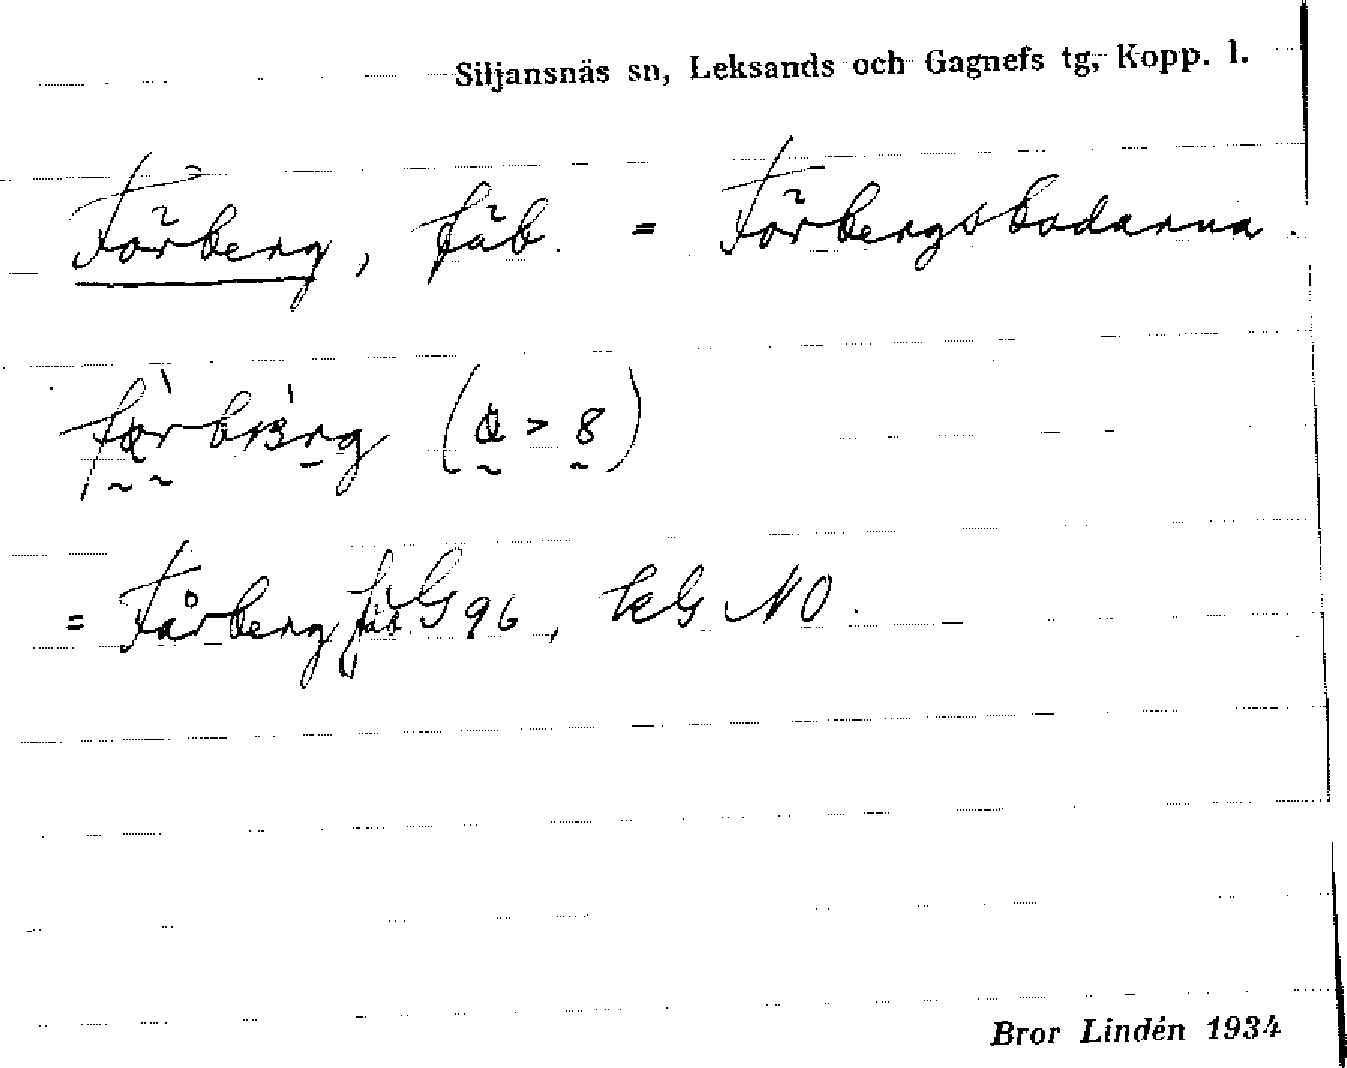 Siljansnäs sn, Leksands och Gagnefs tg, Kopp. l.
Förberg, fäb. = Förbergsbodarna.
= Fårberg fäb G 96, NO.
Bror Lindén 1934